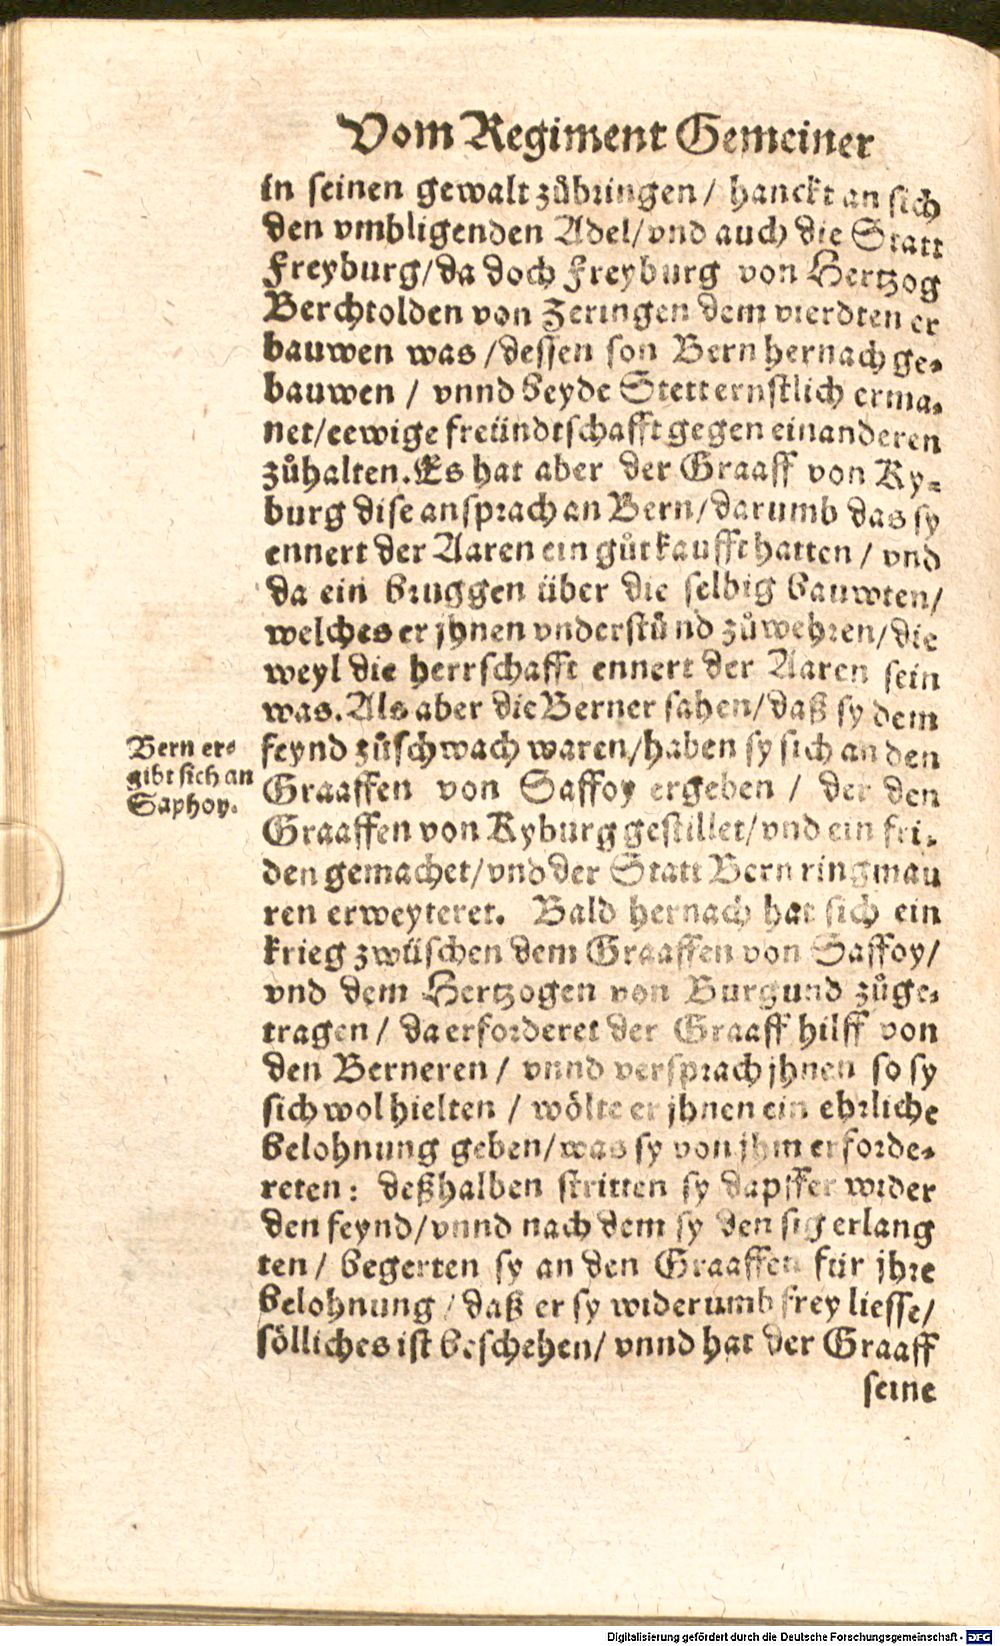 Vom Regiment Gemeiner
in seinen gewalt zůbringen / hanckt an sich
den vmbligenden Adel/vnd auch die Statt
Freyburg/da doch Freyburg von Hertzog
Berchtolden von Zeringen dem vierdten er
bauwen was /dessen son Bern hernach ge-
bauwen / vnnd beyde Stett ernstlich erma-
net/eewige freündtschafft gegen einanderen
zůhalten. Es hat aber der Graaff von Ky-
burg dise ansprach an Bern/darumb das sy
ennert der Aaren ein gůt kaufft hatten / vnd
da ein bruggen über die selbig bauwten/
welches er jhnen vnderstůnd zůwehren/die
weyl die herrschafft ennert der Aaren sein
was. Als aber die Berner sahen/daß sy dem
Bern er-
gibt sich an
Saphoy.
feynd zůschwach waren/haben sy sich an den
Graaffen von Saffoy ergeben / der den
Graaffen von Kyburg gestillet/vnd ein fri-
den gemachet/vnd der Statt Bern ringmau
ren erweyteret. Bald hernach hat sich ein
krieg zwüschen dem Graaffen von Saffoy/
vnd dem Hertzogen von Burgund zůge-
tragen / da erforderet der Graaff hilff von
den Berneren / vnnd versprach jhnen so sy
sich wol hielten / wölte er jhnen ein ehrliche
belohnung geben/was sy von jhm erforde-
reten: deßhalben stritten sy dapffer wider
den feynd/vnnd nach dem sy den sig erlang
ten / begerten sy an den Graaffen für jhre
belohnung / daß er sy widerumb frey liesse/
sölliches ist beschehen/ vnnd hat der Graaff
seine
Digitalisierung gefördert durch die Deutsche Forschungsgemeinschaft - DFG